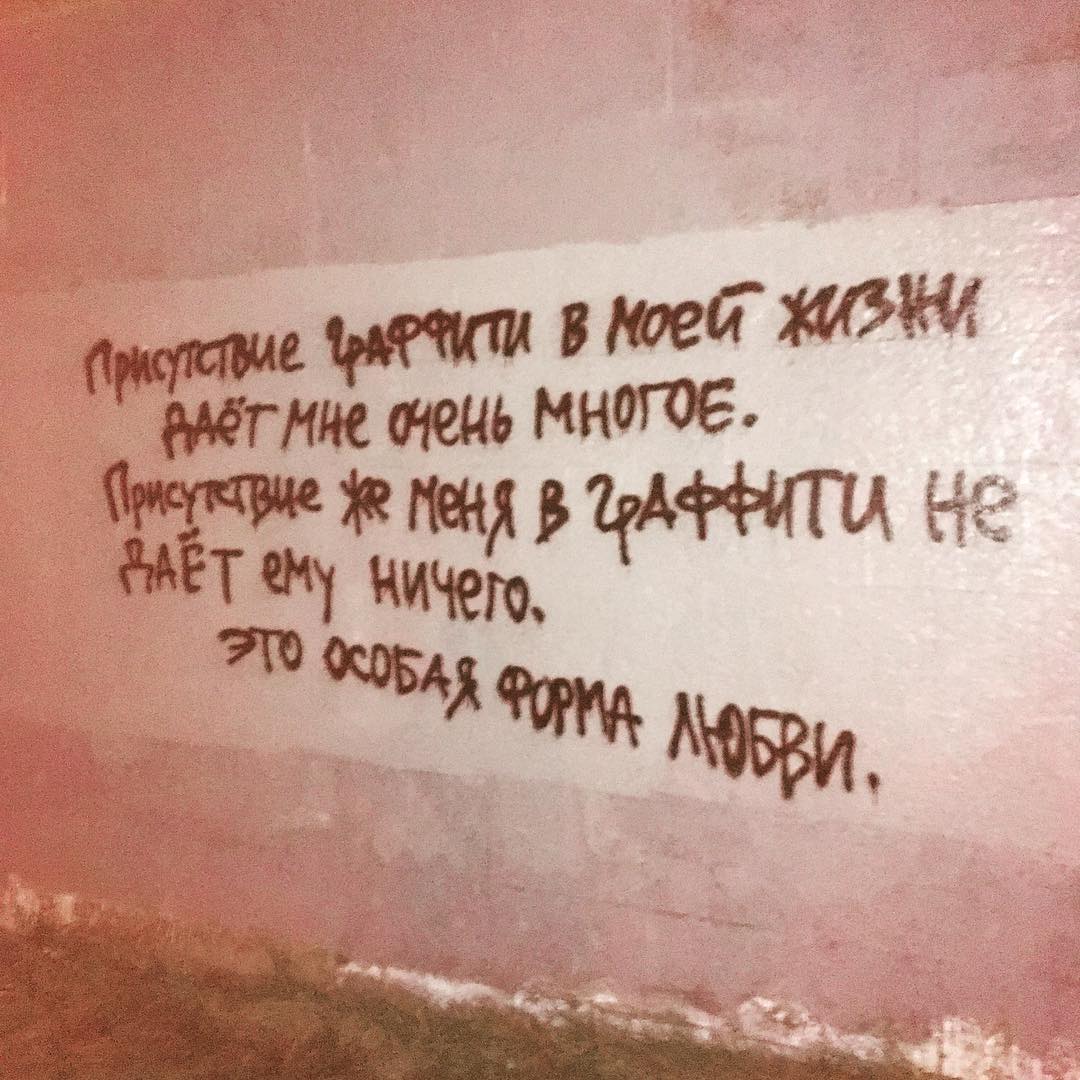 Присутствие граффити в моей жизни
даёт мне очень многое.
Присутствие же меня в граффити не
даёт ему ничего.
это особая форма любви.